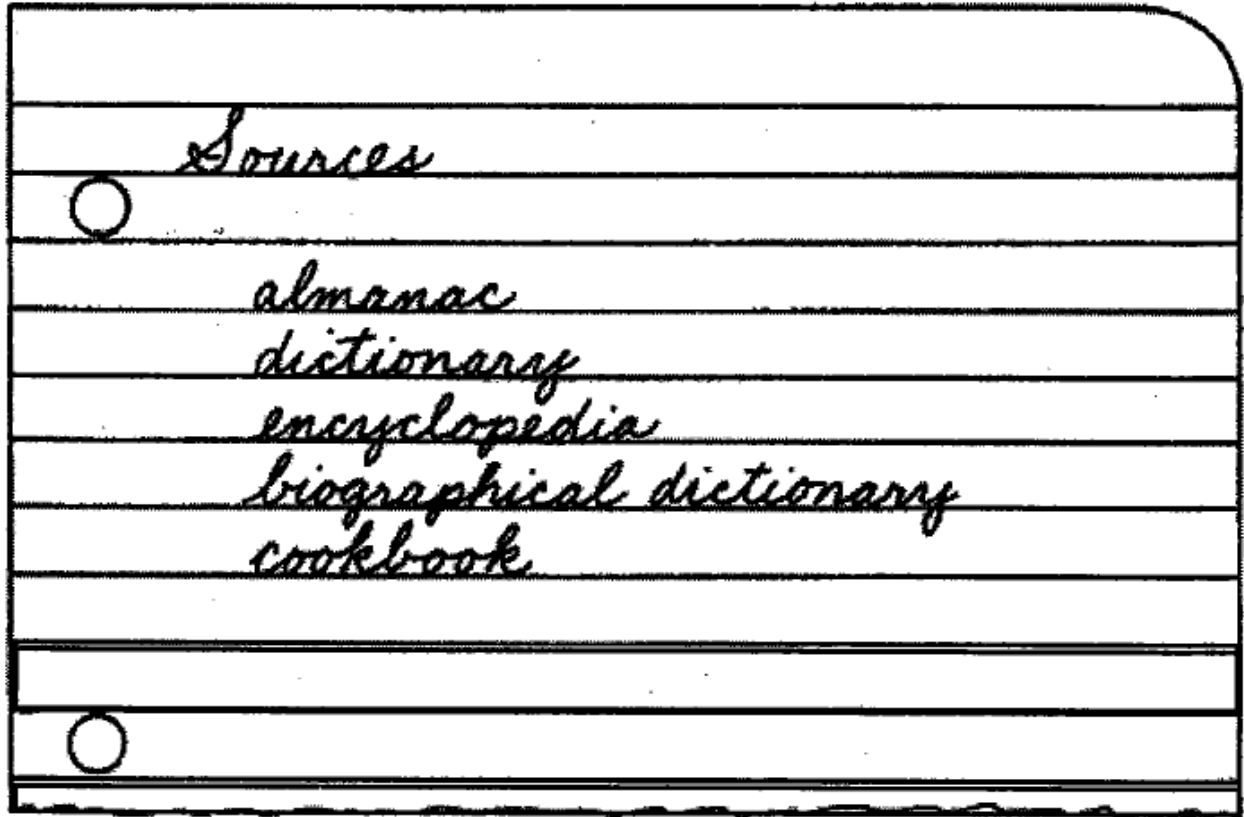 Sources
almanac
dictionary
encyclopedia
biographical dictionary
cookbook